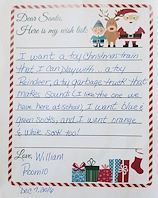 Dear Santa,
Here is my wish list:
I want a toy Christmas train
that I can play with, a toy
Reindeer, a toy garbage truck that
makes sound (I like the one we
have here at school), I want blue &
green socks, and I want orange
& black sock too!
Love, William
Room 10
Dec 7,